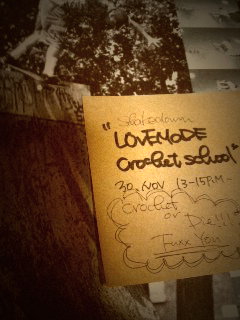 "LOVEMODE
Crochet school"
30. NOV 13-15P.M-
Crochet
or
Die!!!
Fuxx You